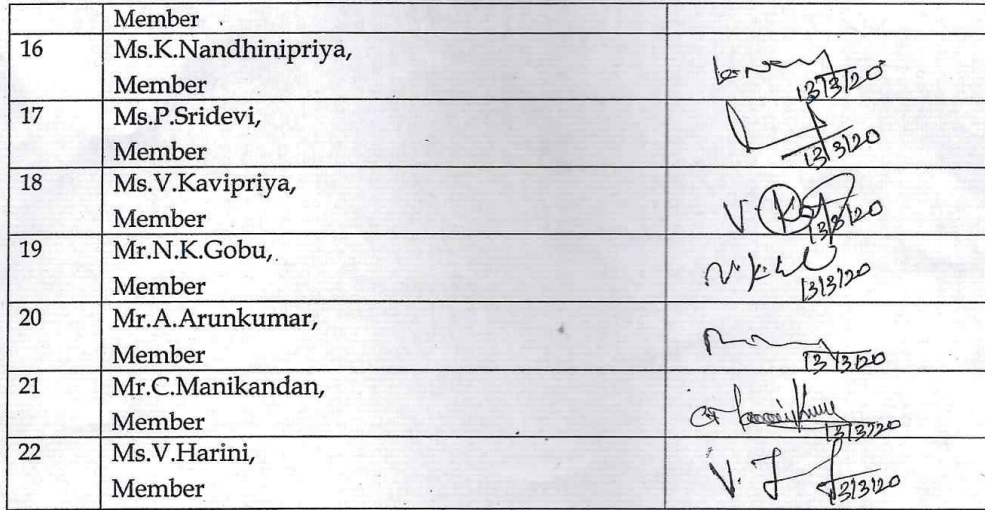 Member
16 Ms.K.Nandhinipriya,
Member
13/3/20
17 Ms.P.Sridevi,
Member
13/3/20
18 Ms.V.Kavipriya,
Member
V.
13/3/20
19 Mr.N.K.Gobu,
Member
13/3/20
20 Mr.A.Arunkumar,
Member
13/3/20
21 Mr.C.Manikandan,
Member
13/3/20
22 Ms.V.Harini,
Member
V.
13/3/20